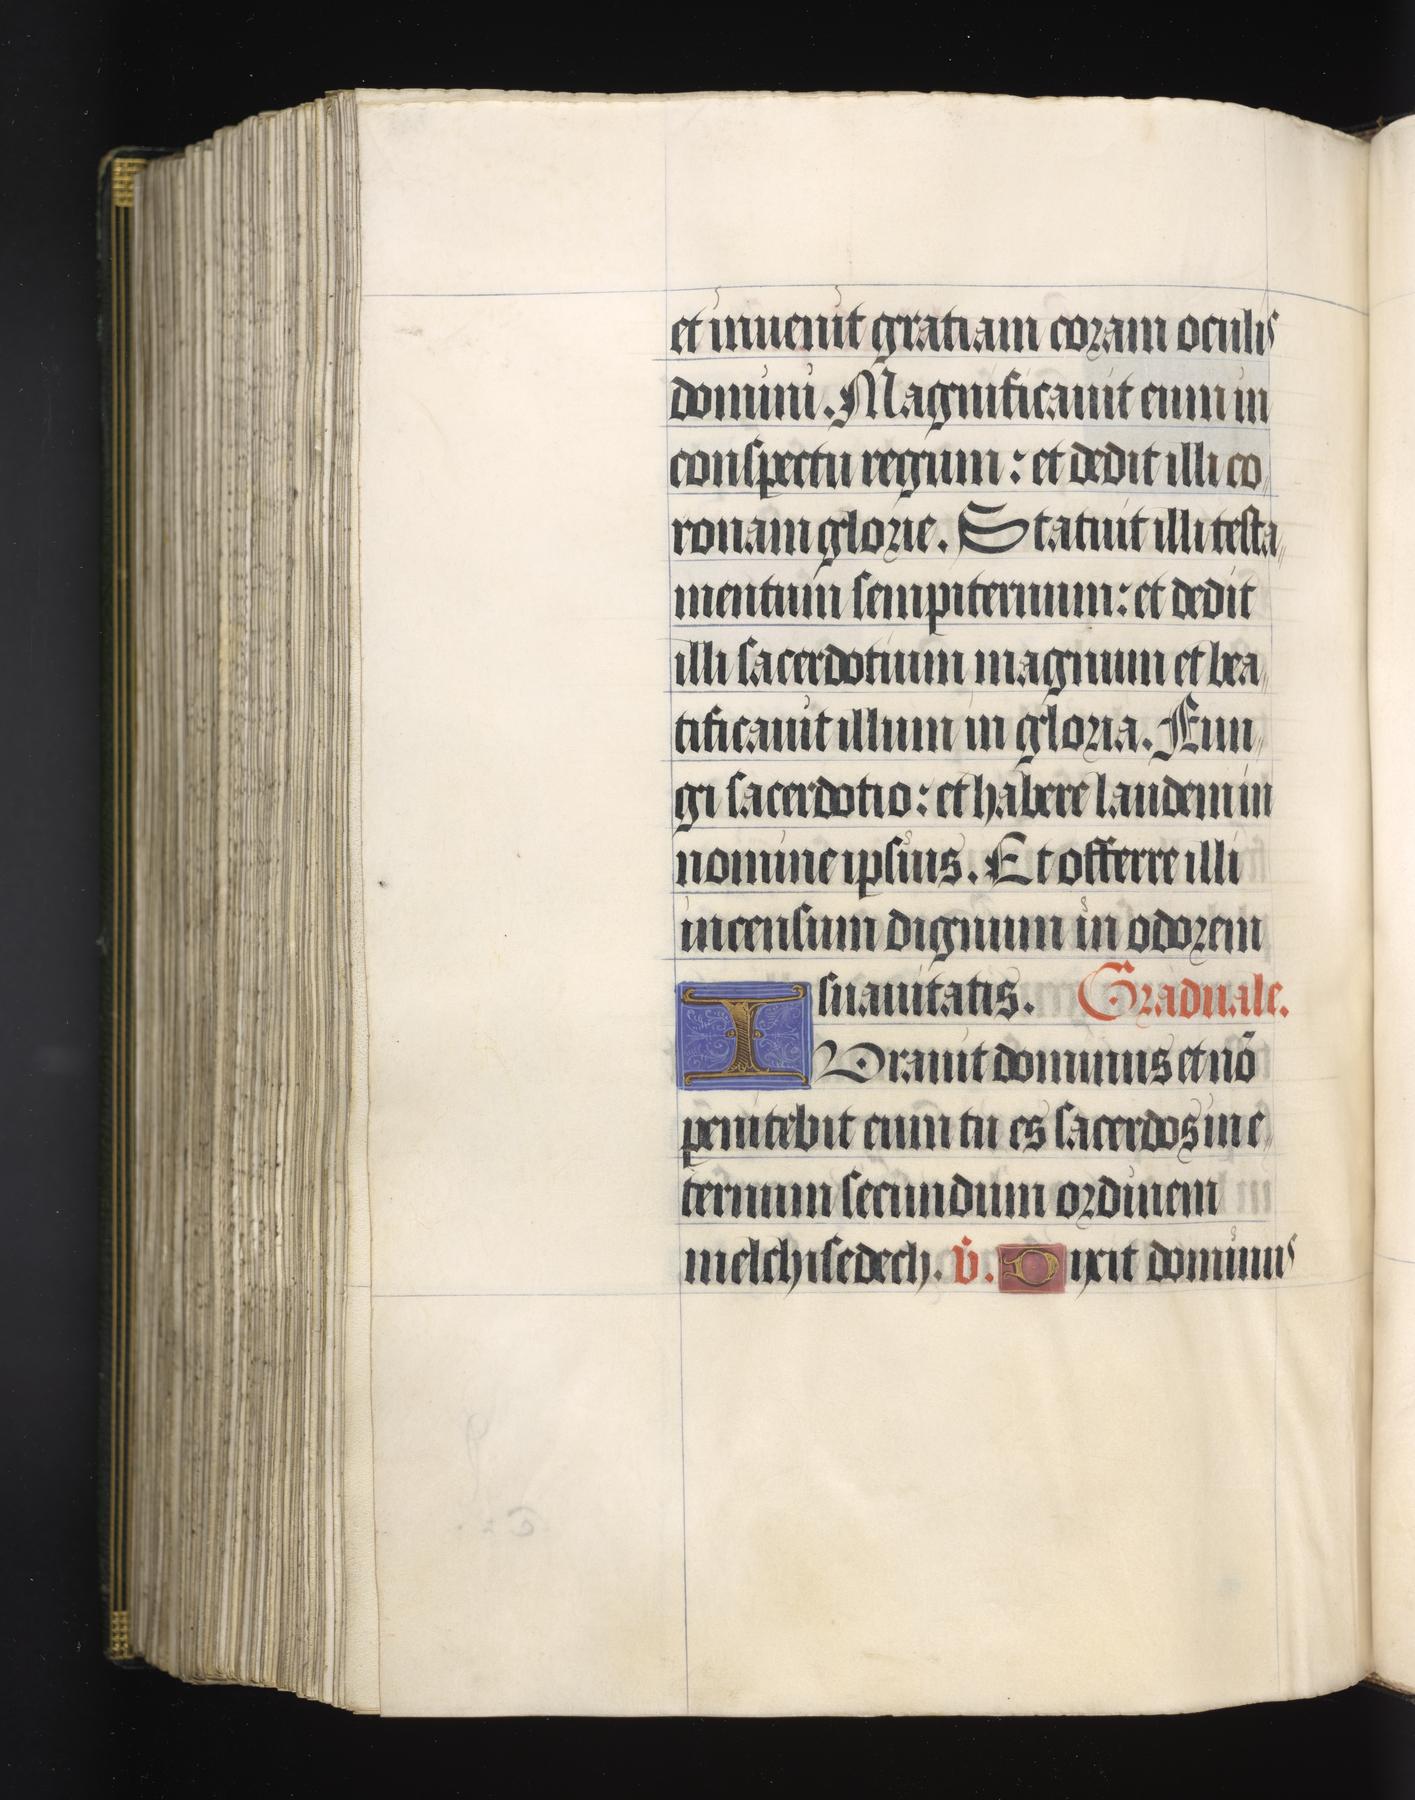 et inuenit gratiam coram oculis
domini. Magnificauit eum in
conspectu regum: et dedit illi co
ronam glorie. Statuit illi testa
mentum sempiternum: et dedit
illi sacerdotium magnum et bea
tificauit illum in gloria. Fun
gi sacerdotio: et habere laudem in
nomine ipsius. Et offerre illi
incensum dignum in odorem
suauitatis. Graduale.
IUrauit dominus et nō
penitebit eum tu es sacerdos in e
ternum secundum ordinem
melchisedech. v̄. Dixit dominus